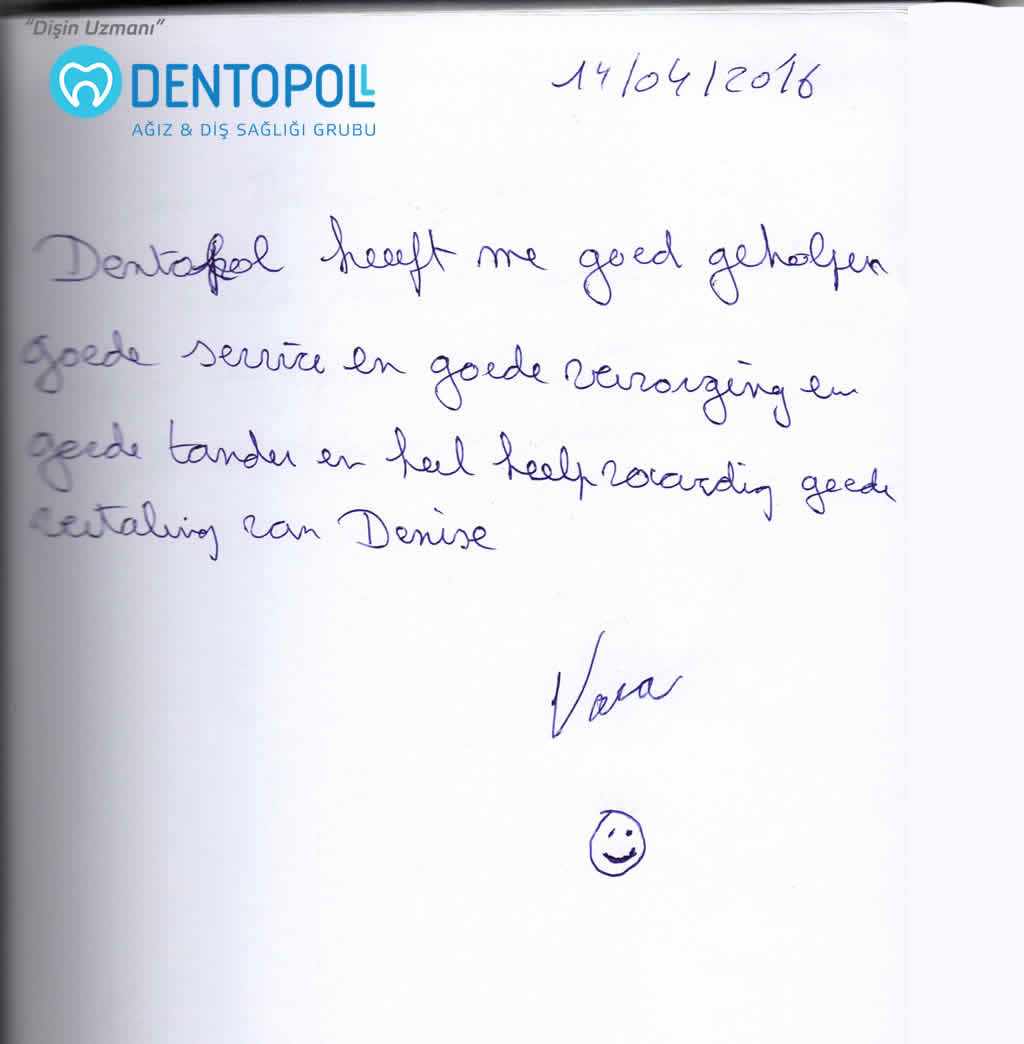 "Dişin Uzmanı"
DENTOPOLL
AĞIZ & DİŞ SAĞLIĞI GRUBU
14/04/2016
Dentopol heeft me goed geholpen
goede service en goede verzorging en
goede tander en heel heelpvaardig goede
vertaling van Denise